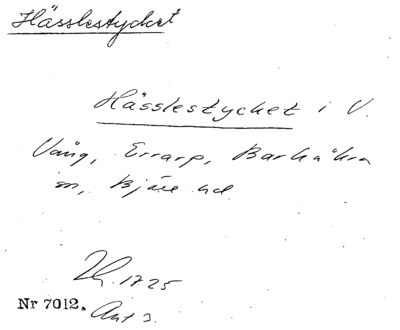 Hässlestycket
Hässlestycket i V.
Vång, Errarp, Barkåkra
sn, Bjäre hd.
1725
Nr 7012. Akt 3.